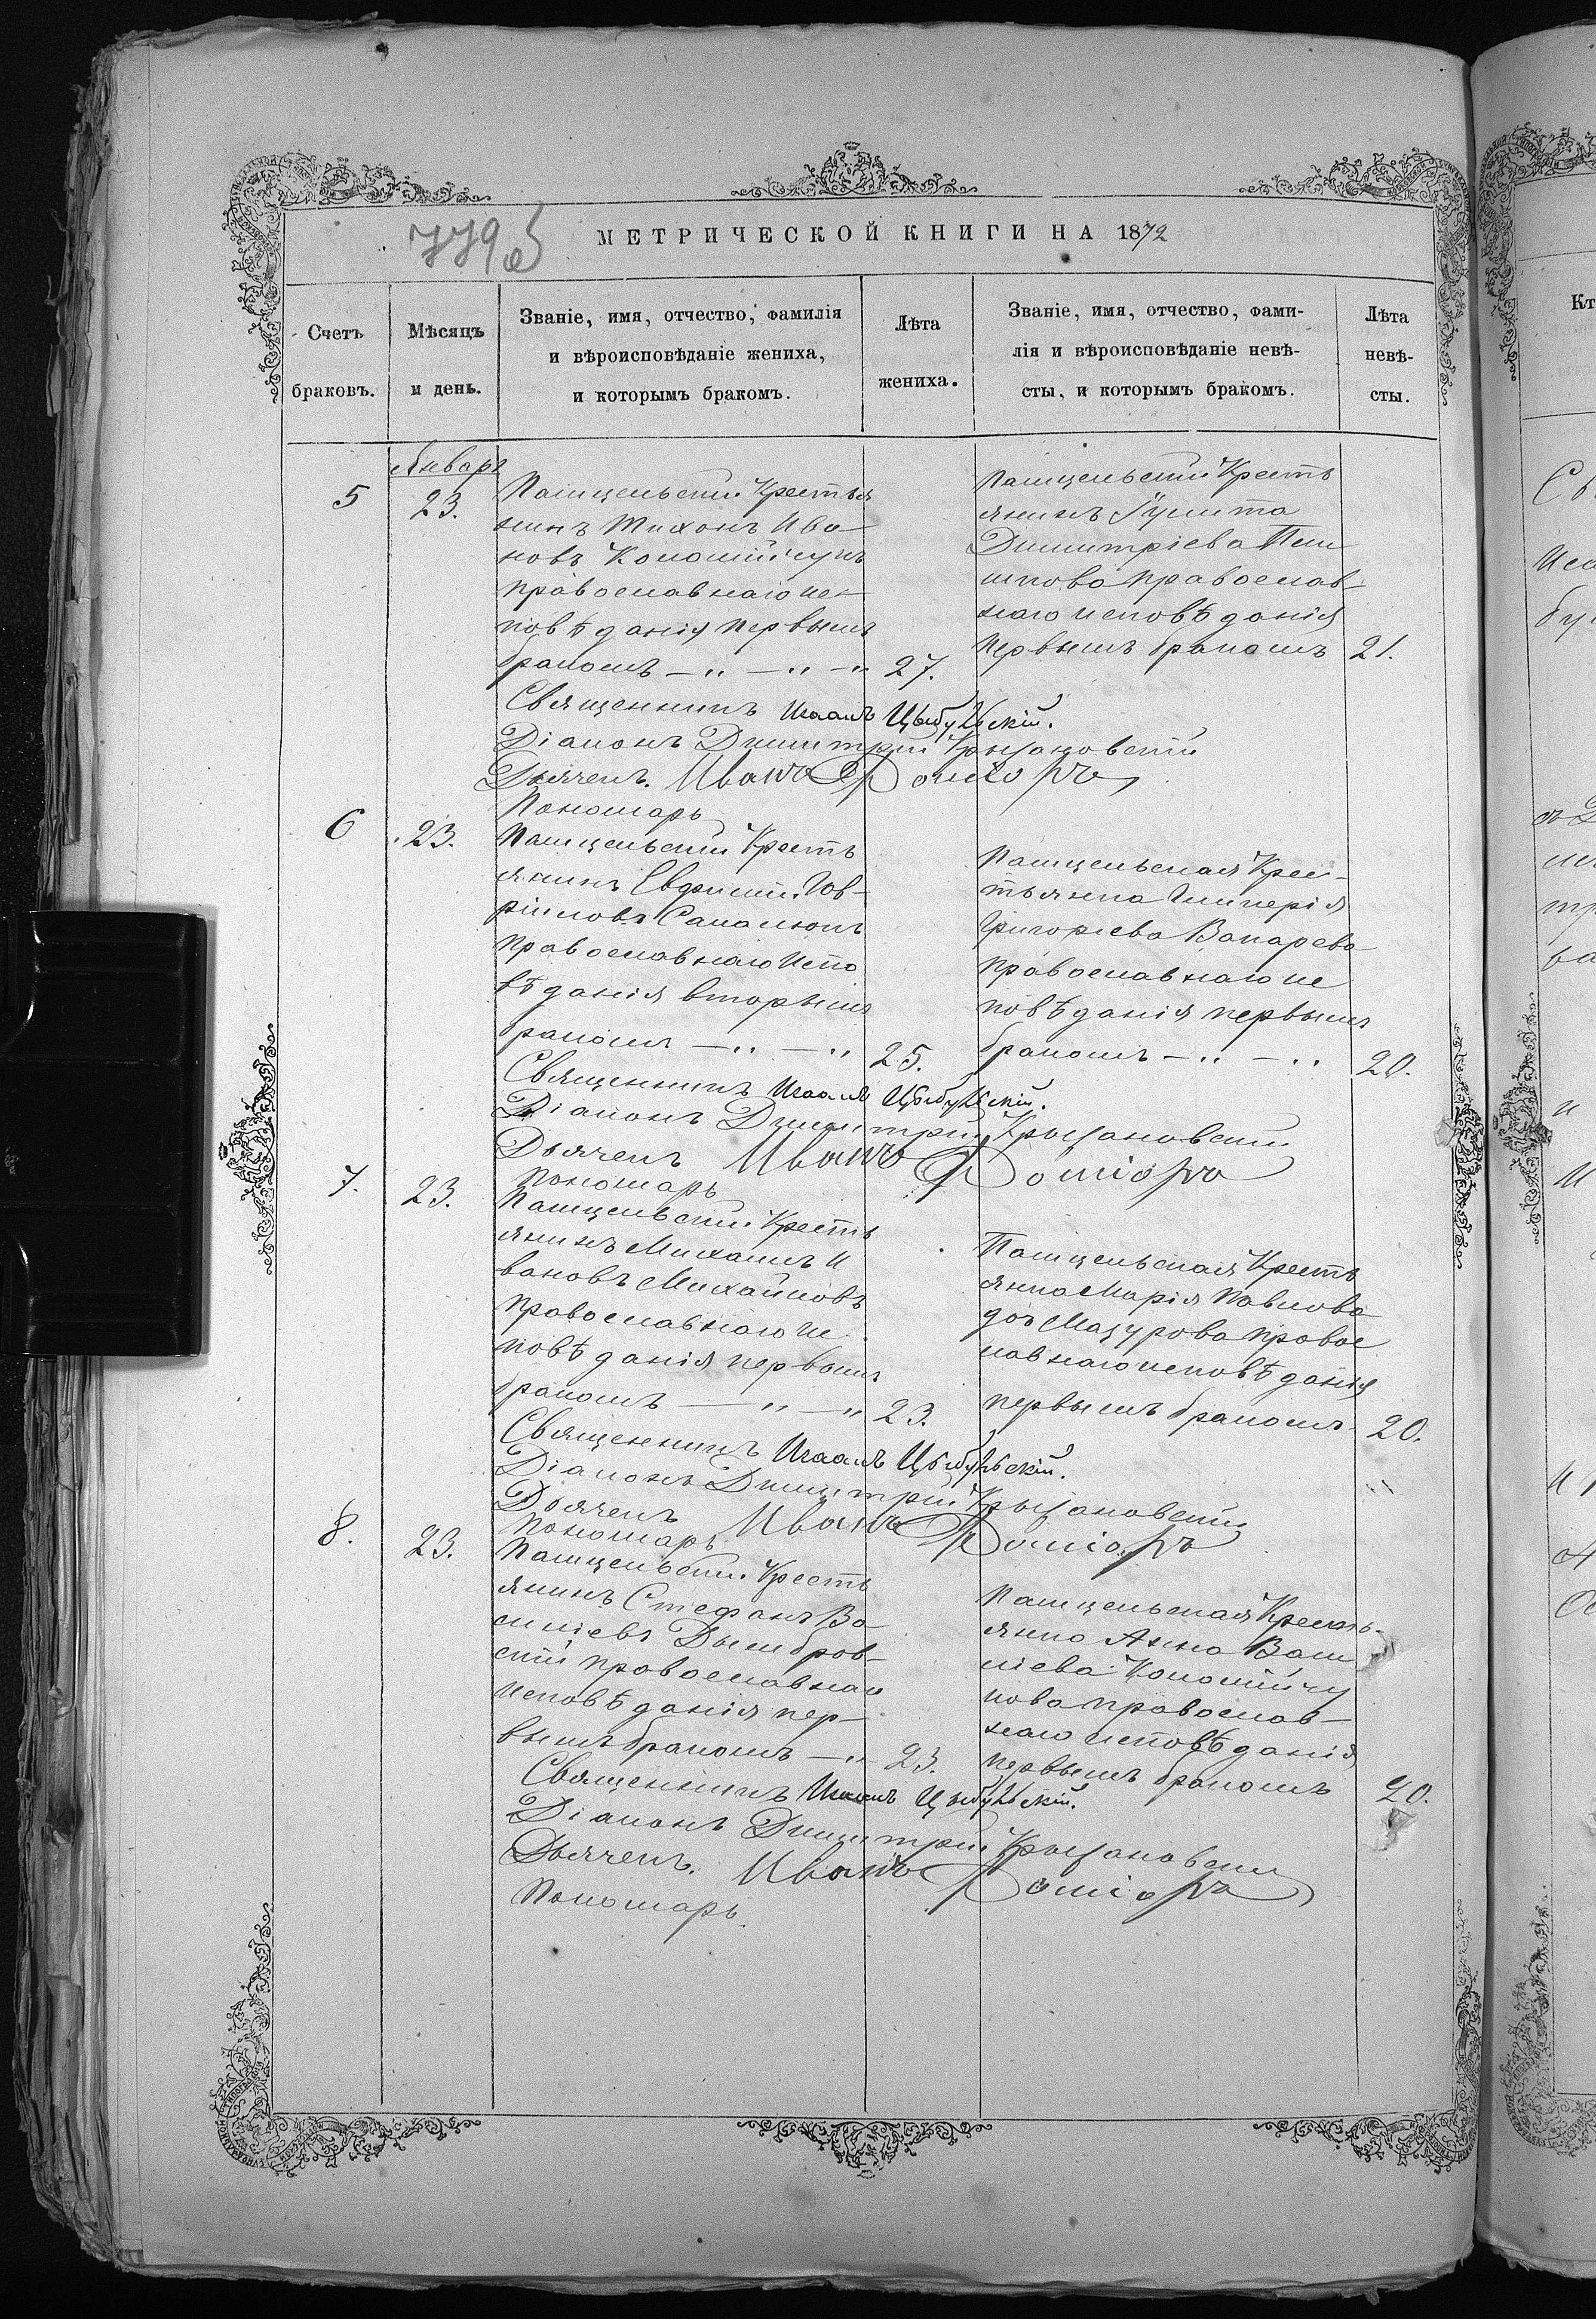 779об
МЕТРИЧЕСКОЙ КНИГИ НА 1872
Счетъ
браковъ.
Мѣсяцъ
и день.
Званіе, имя, отчество, фамилія
и вѣроисповѣданіе жениха,
и которымъ бракомъ.
Лѣта
жениха.
Званіе, имя, отчество, фами-
лія и вѣроисповѣданіе невѣ-
сты, и которымъ бракомъ.
Лѣта
невѣ-
сты.
Январь
5
23.
Крестья
нинъ Тихонъ Ива
новъ Коломійчукъ
православнаго ис-
повѣданія первымъ
бракомъ — " — " — "
27.
Крестъ
янинъ
Димитріева
православ-
наго исповѣданія
первымъ бракомъ
21.
Священникъ Иоаннъ Цыбульскій.
Діаконъ Димитрій Крыжановскій
Дьячекъ. Иванъ
Пономарь
6
23.
Кресть
янинъ
православнаго испо
вѣданія вторымъ
бракомъ — " — "
25.
Крес-
тьянка Гликерія
Григоріева Вакарева
православнаго ис
повѣданія первымъ
бракомъ — " — "
20.
Священникъ Иоаннъ Цыбульскій.
Діаконъ Димитрій Крыжановскій
Дьячекъ Иванъ
Пономарь
7.
23.
Кресть
янинъ Михаилъ И
вановъ Михайловъ
православнаго ис
повѣданія первымъ
бракомъ — " — "
23.
Кресть
янка Марія Павлова
доч Мазурова правос
лавнаго исповѣданія
первымъ бракомъ
20.
Священникъ Иоаннъ Цыбульскій.
Діаконъ Димитрій Крыжановскій
Дьячекъ Иванъ
Пономарь
8.
23.
Кресть
янинъ Стефанъ Ва-
силіевъ Дымбров-
скій православнаго
исповѣданія пер-
вымъ бракомъ — "
23.
Кресть-
янка Анна Васи
ліева Коломійчу
кова православ-
наго исповѣданія
первымъ бракомъ
20.
Священникъ Иоаннъ Цыбульскій.
Діаконъ Димитрій Крыжановскій
Дьячекъ. Иванъ
Пономарь.